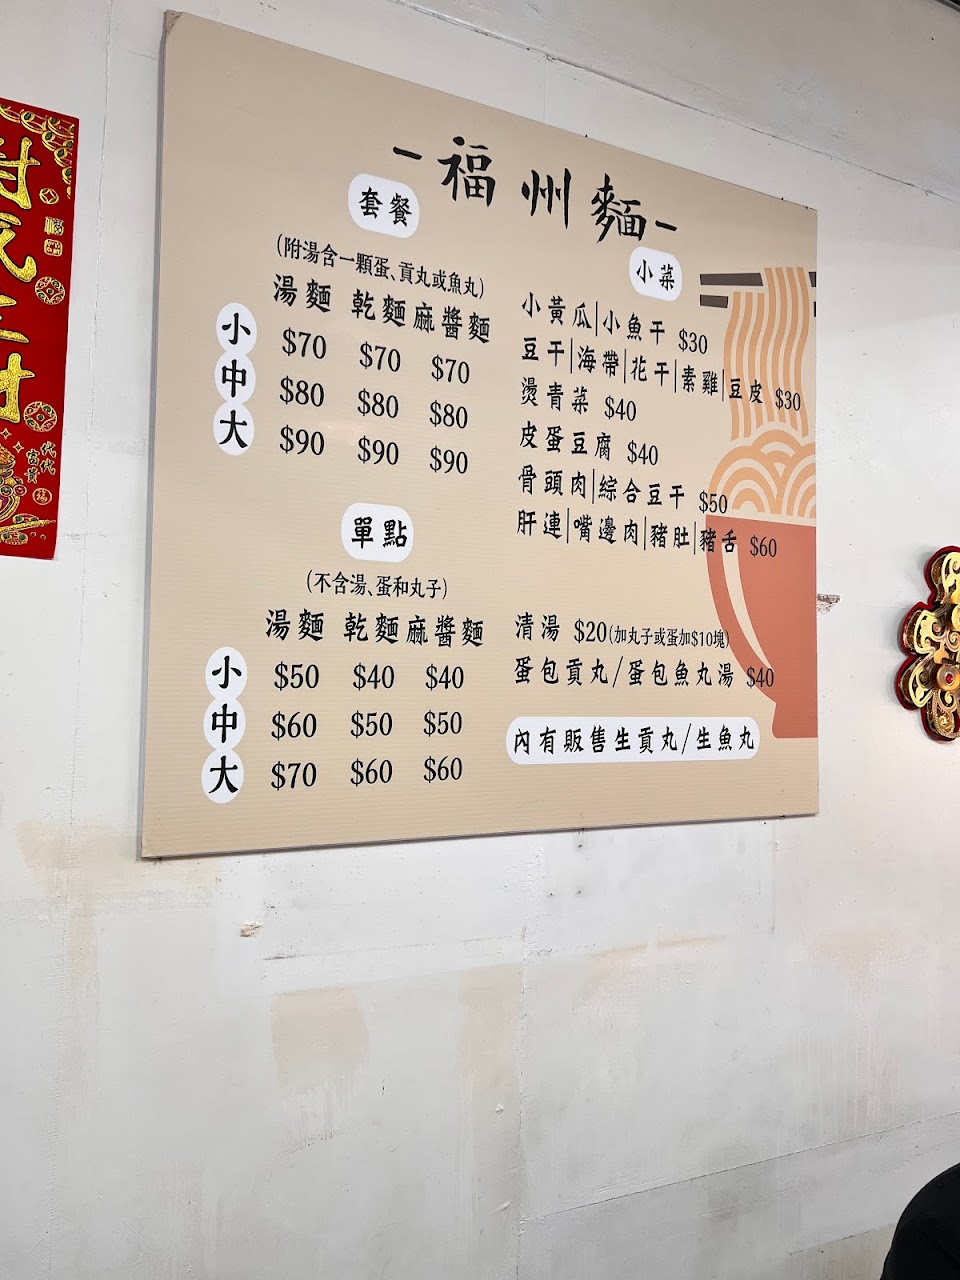 －福州麵－
套餐
(附湯含一顆蛋、貢丸或魚丸)
湯麵 乾麵 麻醬麵
小 $70 $70 $70
中 $80 $80 $80
大 $90 $90 $90
單點
(不含湯、蛋和丸子)
湯麵 乾麵 麻醬麵
小 $50 $40 $40
中 $60 $50 $50
大 $70 $60 $60
小菜
小黃瓜|小魚干 $30
豆干|海帶|花干|素雞|豆皮 $30
燙青菜 $40
皮蛋豆腐 $40
骨頭肉|綜合豆干 $50
肝連|嘴邊肉|豬肚|豬舌 $60
清湯 $20(加丸子或蛋加$10塊)
蛋包貢丸/蛋包魚丸湯 $40
內有販售生貢丸/生魚丸
代代
富貴
福